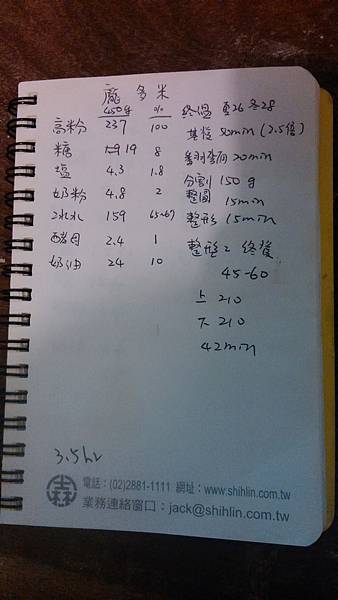 龐多米
450g %
高粉 237 100
糖 19 8
塩 4.3 1.8
奶粉 4.8 2
冰水 159 65-67
酵母 2.4 1
奶油 24 10
終溫 夏26 冬28
基發 50min (2.5倍)
翻面 30min
分割 150g
整圓 15min
整形 15min
整型2 終發
45-60
上 210
下 210
42min
3.5hr
電話：(02)2881-1111 網址：www.shihlin.com.tw
業務連絡窗口：jack@shihlin.com.tw